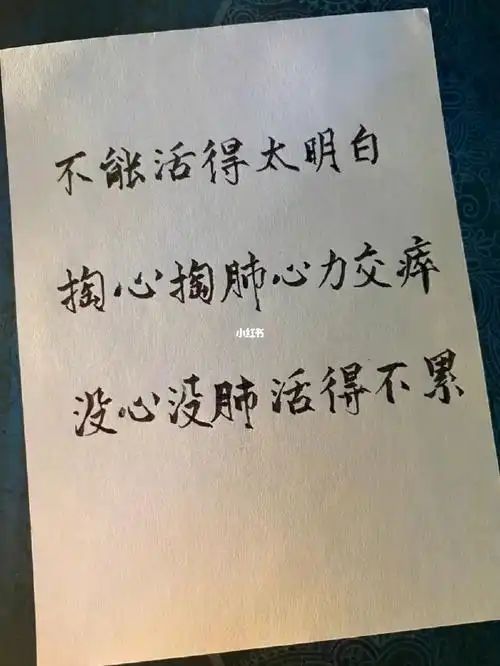 不能活得太明白
掏心掏肺心力交瘁
小红书
没心没肺活得不累